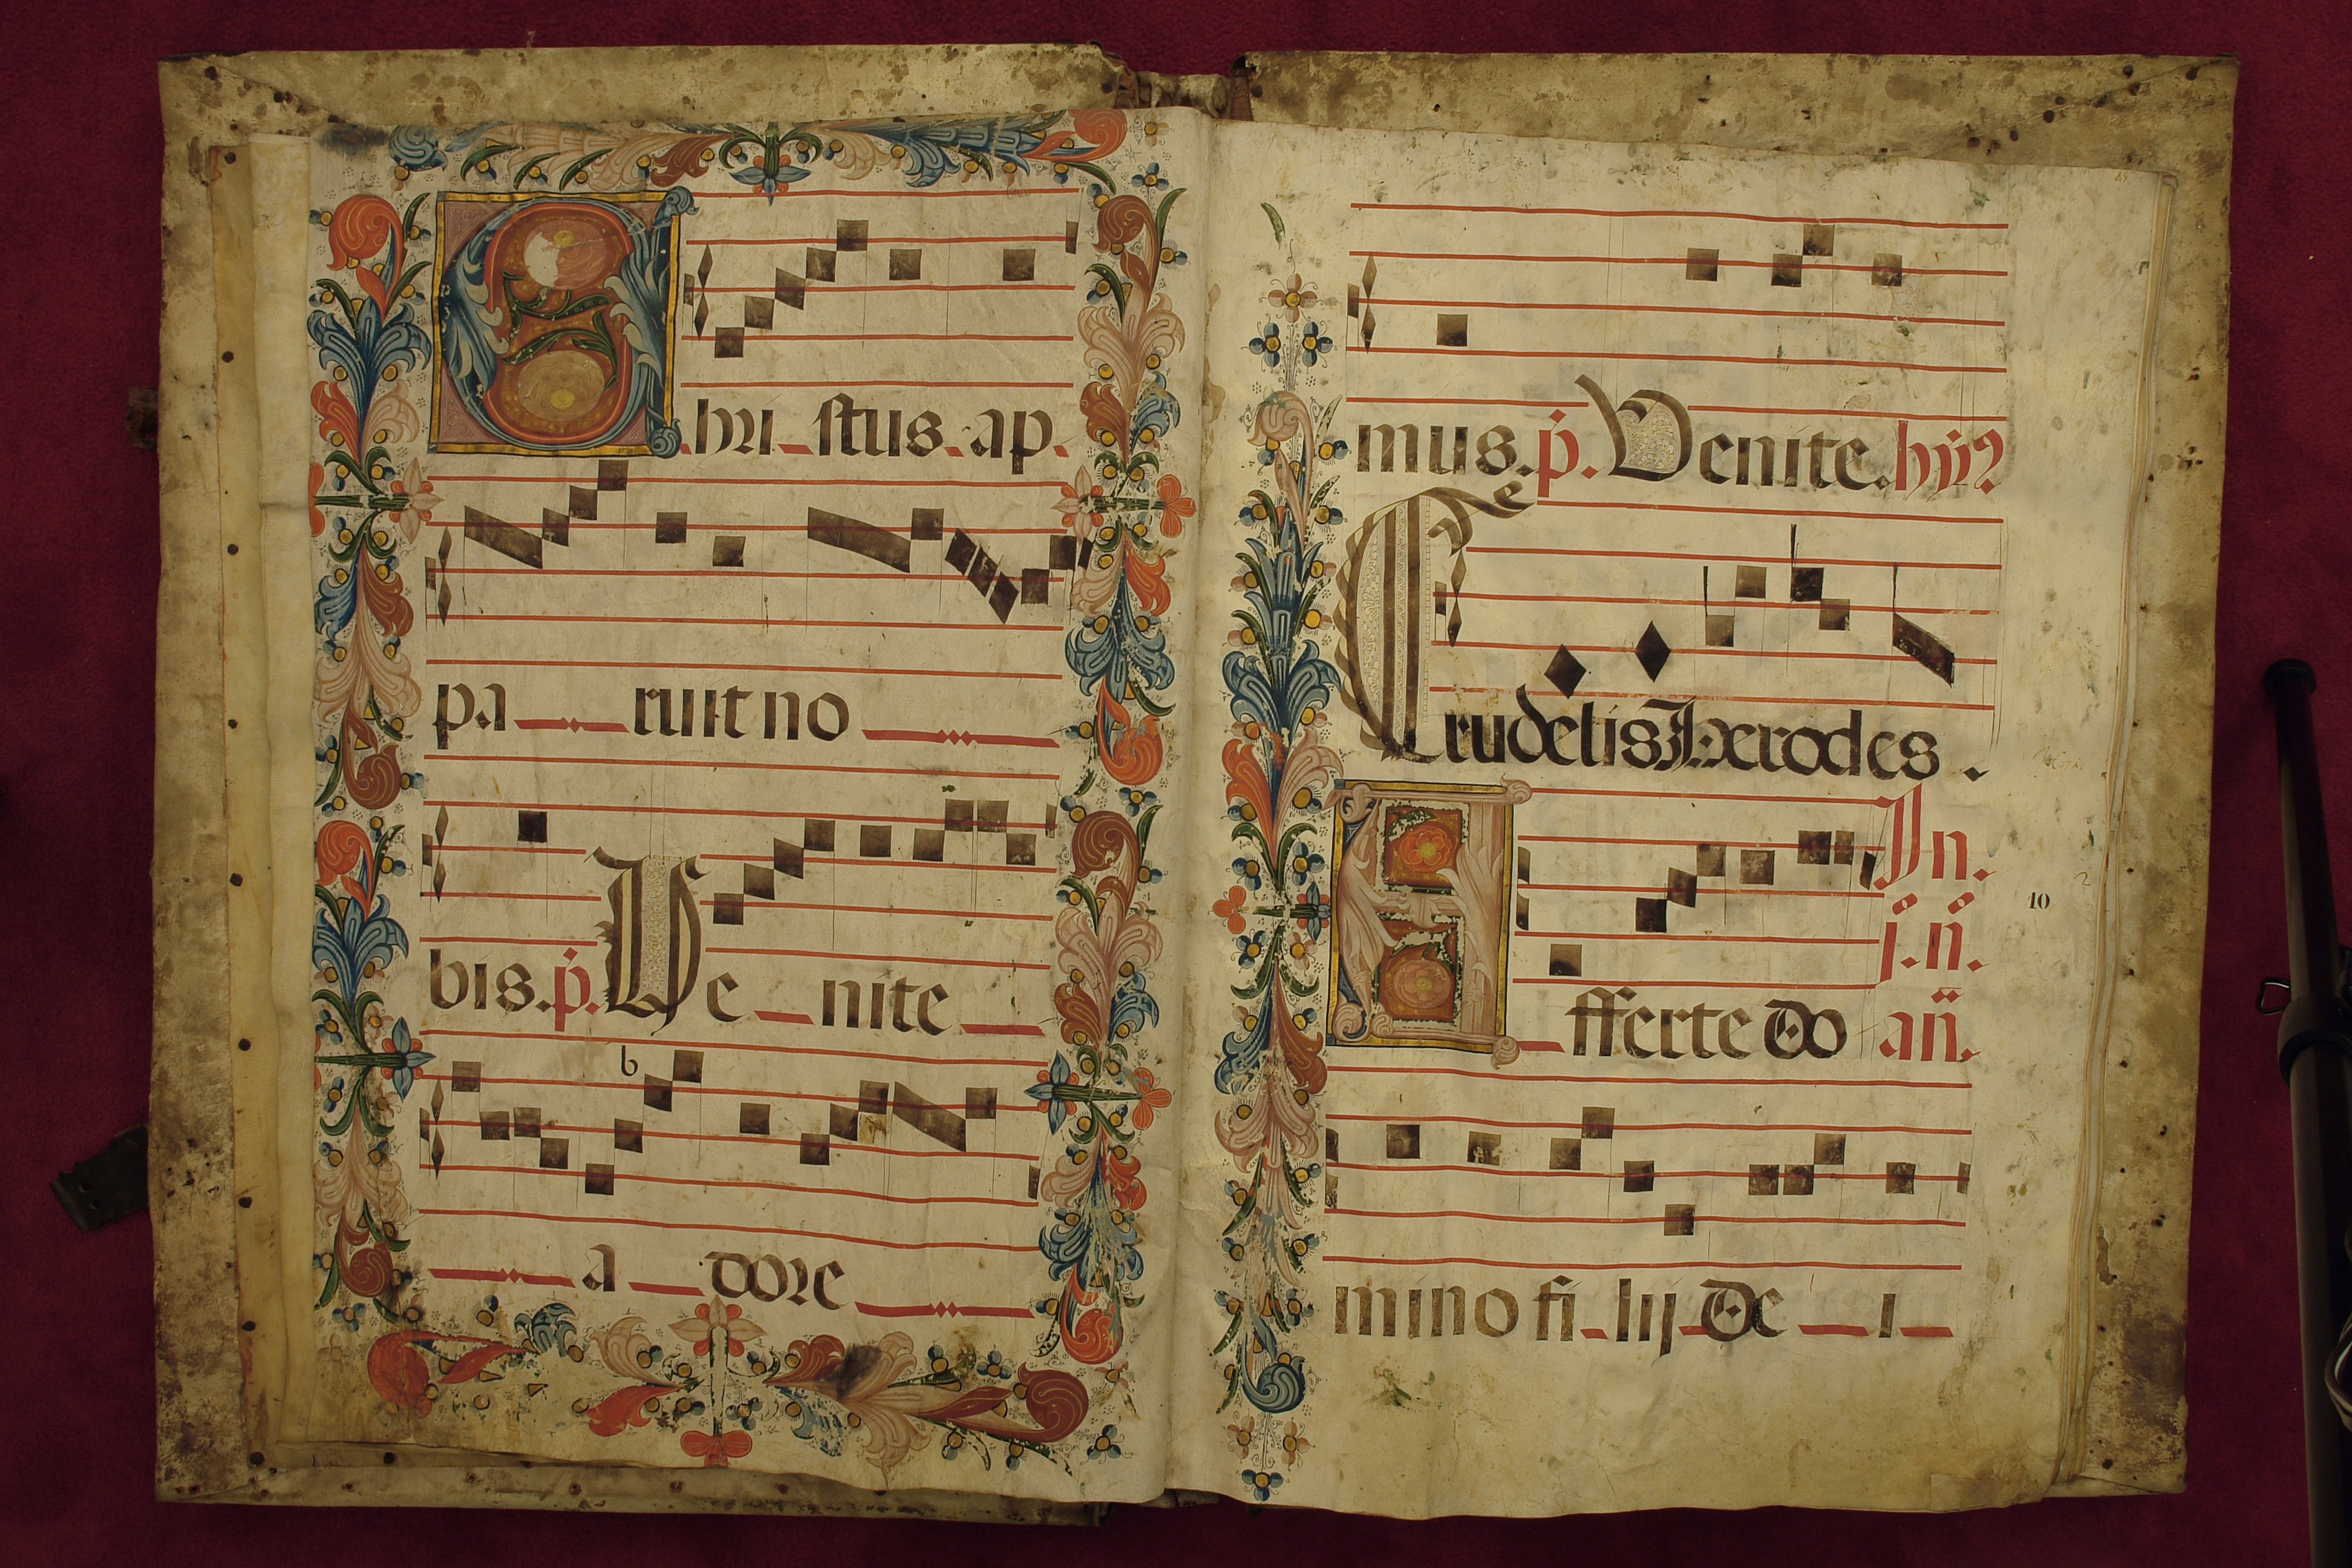 Chri stus ap
pa ruit no
bis. p. Ve nite
b
a dore
mus. p. Venite. hỹ
Crudelis Herodes.
In.
j. n.
Afferte do an.
10
mino fi lij de i